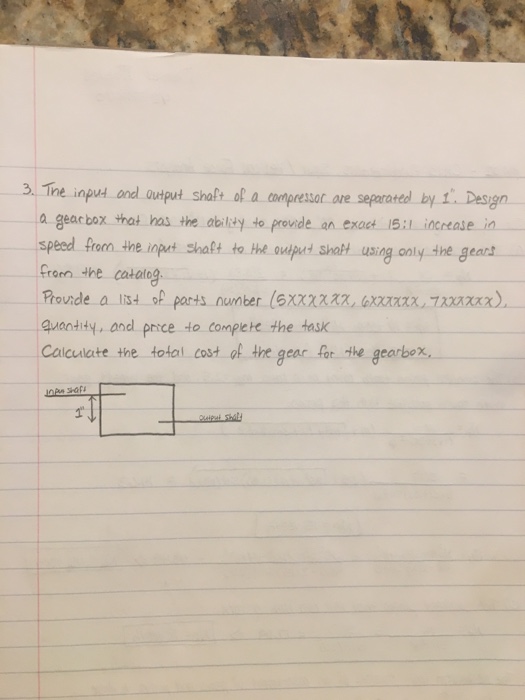 3. The input and output shaft of a compressor are separated by 1". Design
a gearbox that has the ability to provide an exact 15:1 increase in
speed from the input shaft to the output shaft using only the gears
from the catalog.
Provide a list of parts number (5XXXXXX, 6XXXXXX, 7XXXXXX),
quantity, and price to complete the task
Calculate the total cost of the gear for the gearbox.
input shaft
1"
output shaft